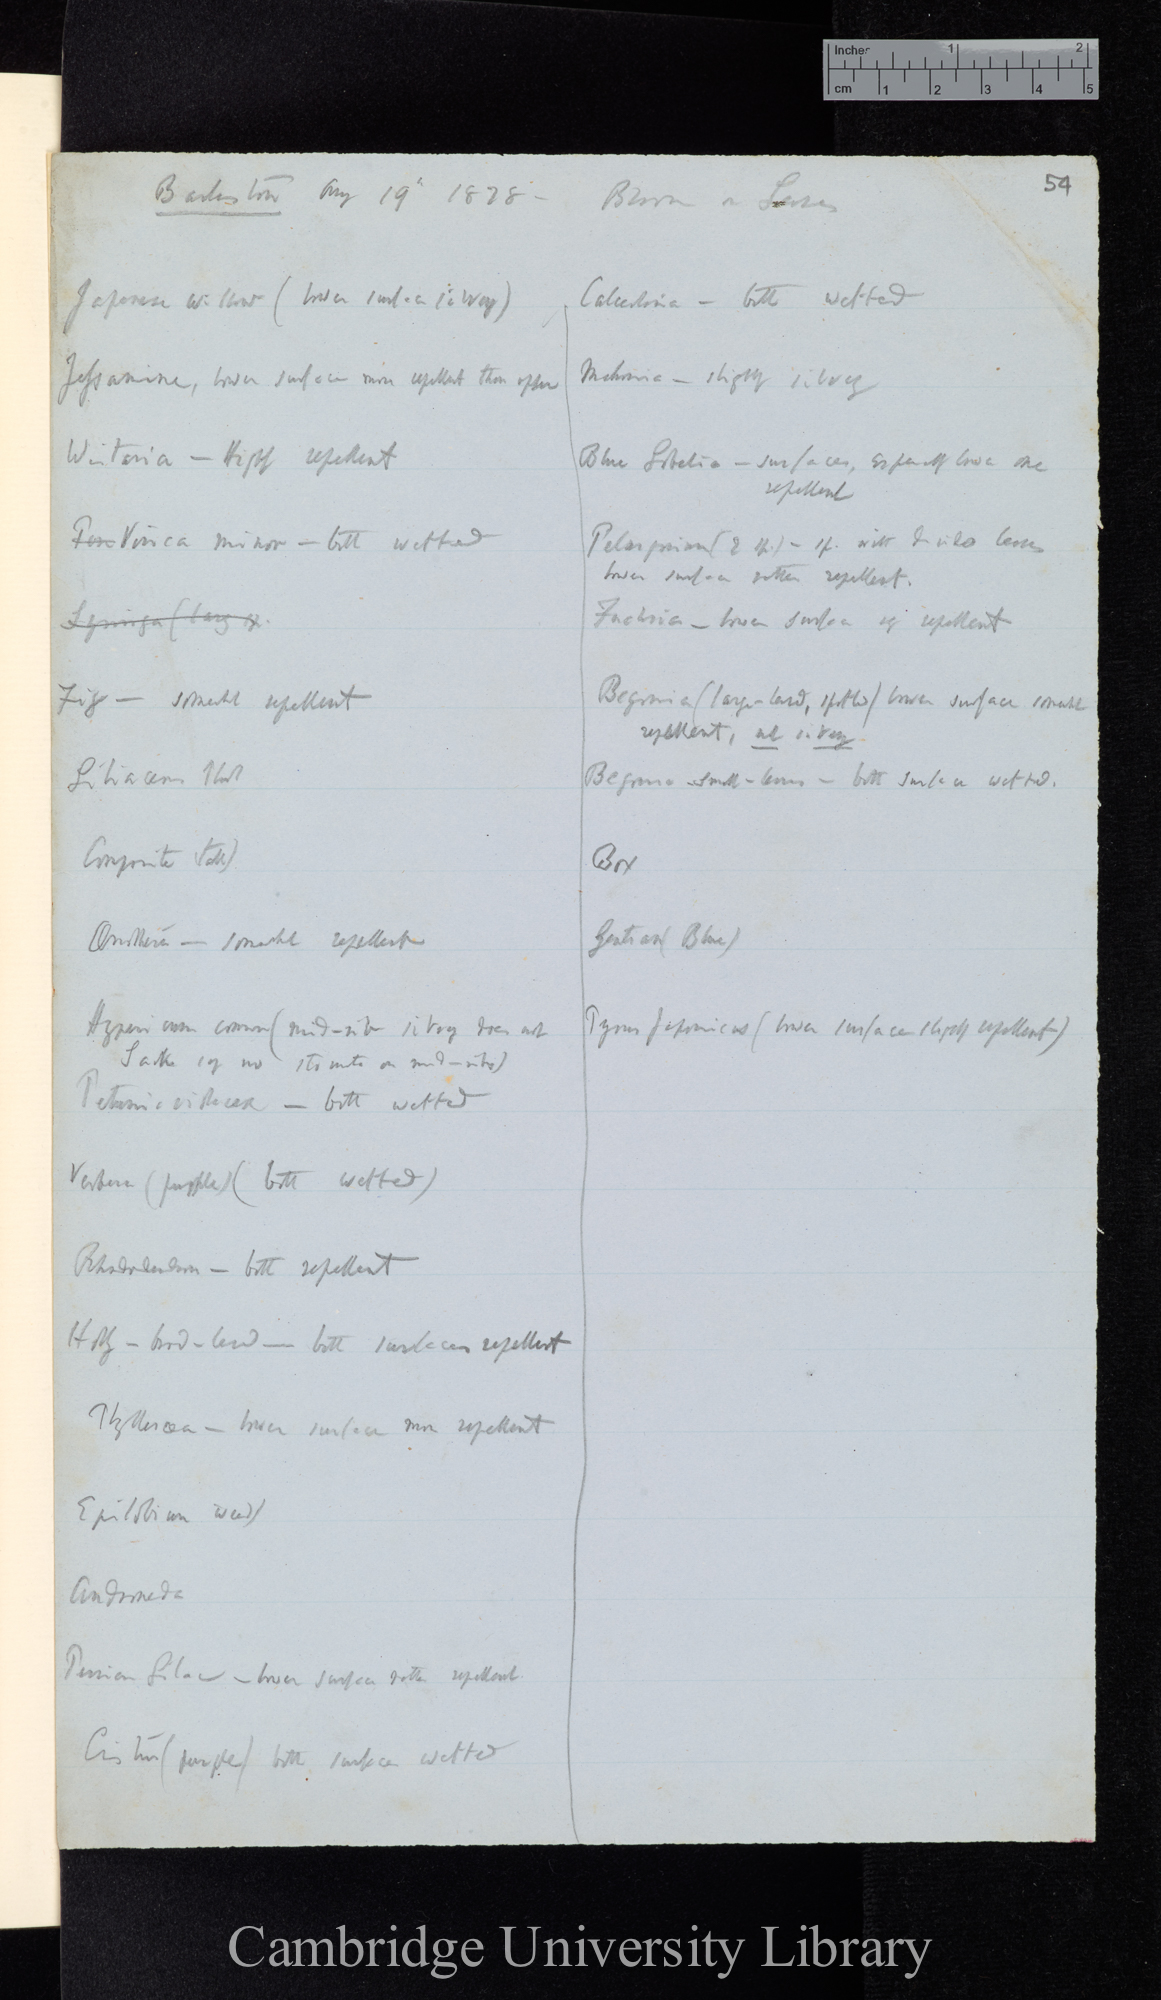 Inches 1 2
cm 1 2 3 4 5
54
Barlaston Aug 19th 1878 — Bloom on Leaves
Japanese willow (lower surface silvery)
Jessamine, lower surface more repellent than upper
Wistaria — Highly repellent
Vinca minor — both wetted
Syringa (large
Fig — somewhat repellent
Liliaceous Plant
Composite (tall)
Œnothera — somewhat repellent
Hypericum common (mid-rib silvery does not
no stomata on mid-ribs)
Petunia violacea — both wetted
Verbena (purple) (both wetted)
Rhododendron — both repellent
Holly — broad-leaved — both surfaces repellent
Phylleraea — lower surface more repellent
Epilobium weed)
Andromeda
Persian Lilac — lower surface rather repellent
Cistus (purple) both surfaces wetted
Calceolaria — both wetted
Mahonia — slightly silvery
Blue Lobelia — surfaces, especially lower one
repellent
Pelargonium (2 sp.) — sp. with divided leaves
lower surface rather repellent.
Fuchsia — lower surface repellent
Begonia (large-leaved, spotted) lower surface somewhat
repellent, not silvery
Begonia small-leaves — both surface wetted.
Box
Gentian (Blue)
Pyrus Japonicus (lower surface slightly repellent)
Cambridge University Library